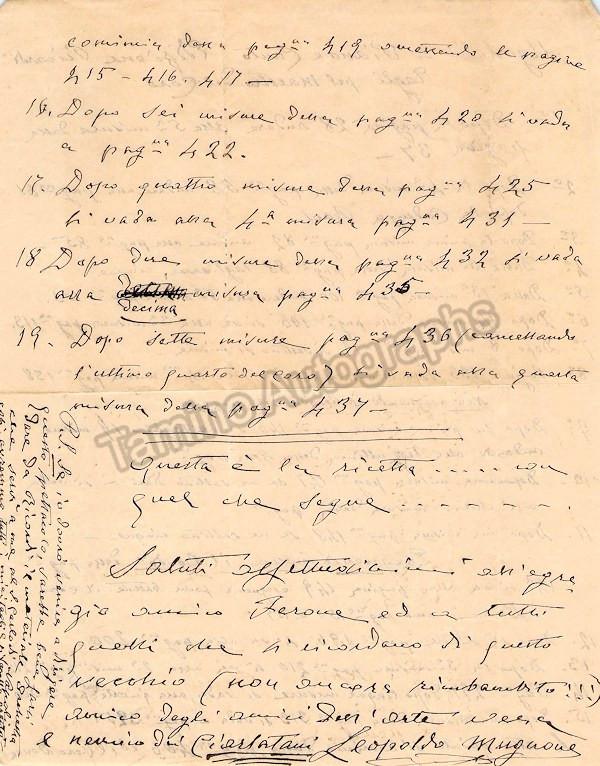 comincia dalla pag^na 419 omettendo le pagine
415 - 416. 417 —
16. Dopo sei misure della pag^na 420 si vada
a pag^na 422.
17. Dopo quattro misure della pag^na 425
si vada alla 4ª misura pag^na 431 —
18 Dopo due misure della pag^na 432 si vada
alla misura pag^na 435 —
decima
19. Dopo sette misure pag^na 436 (cancellando
l'ultimo quarto del coro) si vada alla quarta
misura della pag^na 437 —
Questa è la ricetta ..... con
quel che segue .........
Saluti affettuosissimi all'egre
gio amico Ferone ed a tutti
quelli che si ricordano di questo
vecchio (non ancora rimbambito!!!)
amico degli amici dell'arte vera
e nemico dei Ciarlatani Leopoldo Mugnone
P.S. Se io dovrò venire a dirigere
questo spettacolo sarebbe bene
fare da Ricordi il materiale
che servì a me al
Tamino Autographs